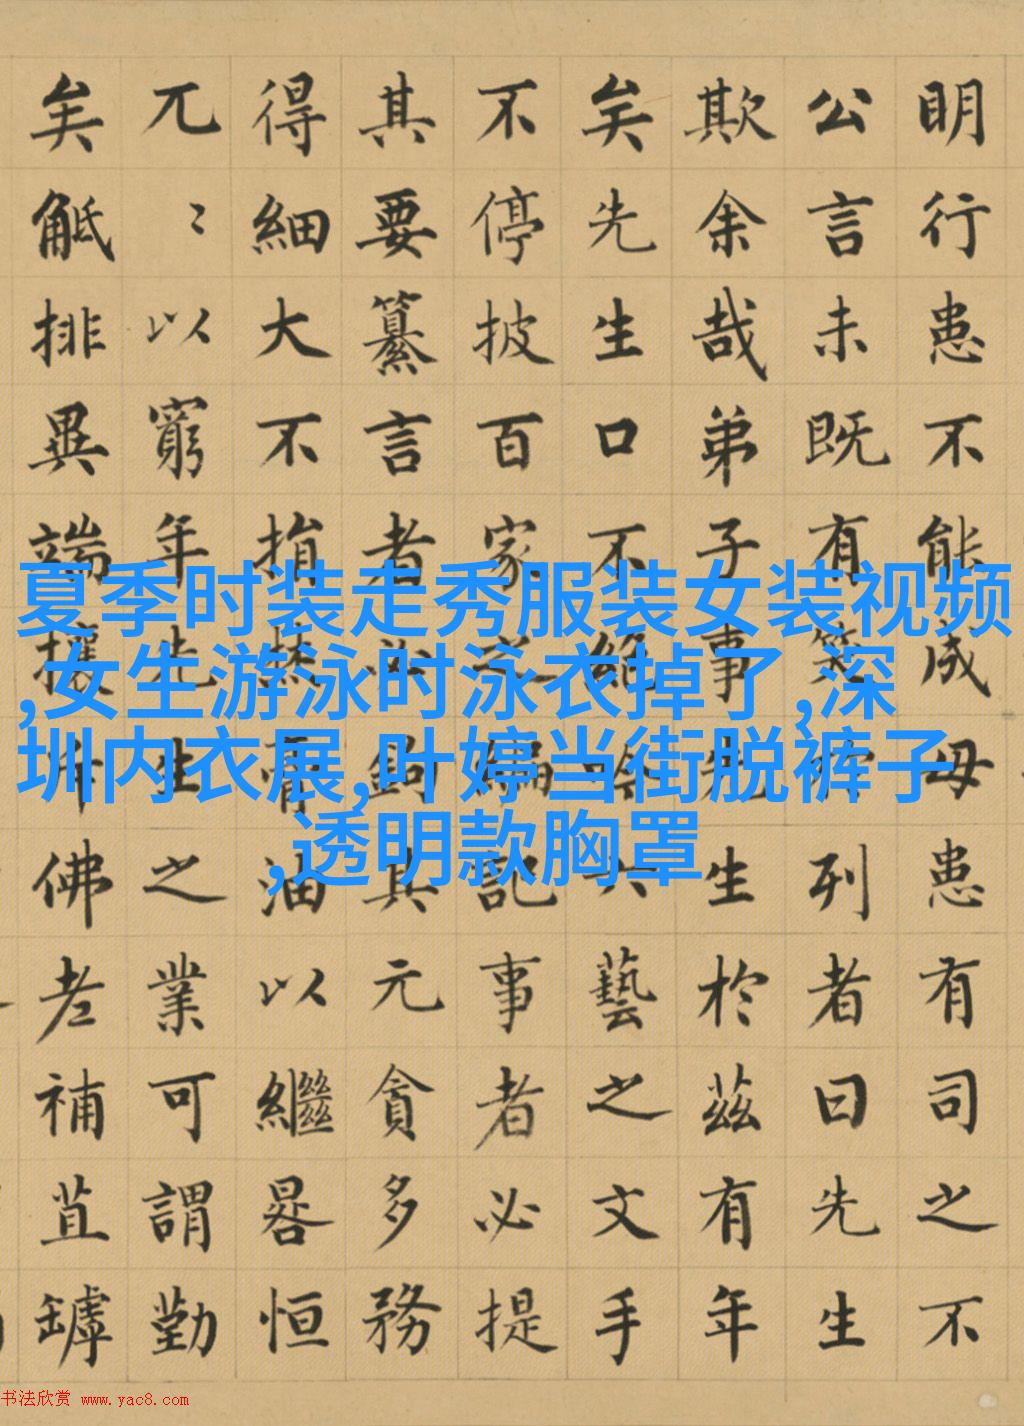 明行患不能成毋患有司之不
公言未既有笑於列者曰先生
欺余哉弟子事先生於茲有年
矣先生口不絕吟六藝之文手
不停披百家之編記事者必提
其要纂言者必鉤其元貪多務
得細大不捐焚膏油以繼晷恒
兀〻以窮年先生之業可謂勤
矣觝排異端攘斥佛老補苴罅
夏季时装走秀服装女装视频
,女生游泳时泳衣掉了,深
圳内衣展,叶婷当街脱裤子
,透明款胸罩
书法欣赏 www.yac8.com